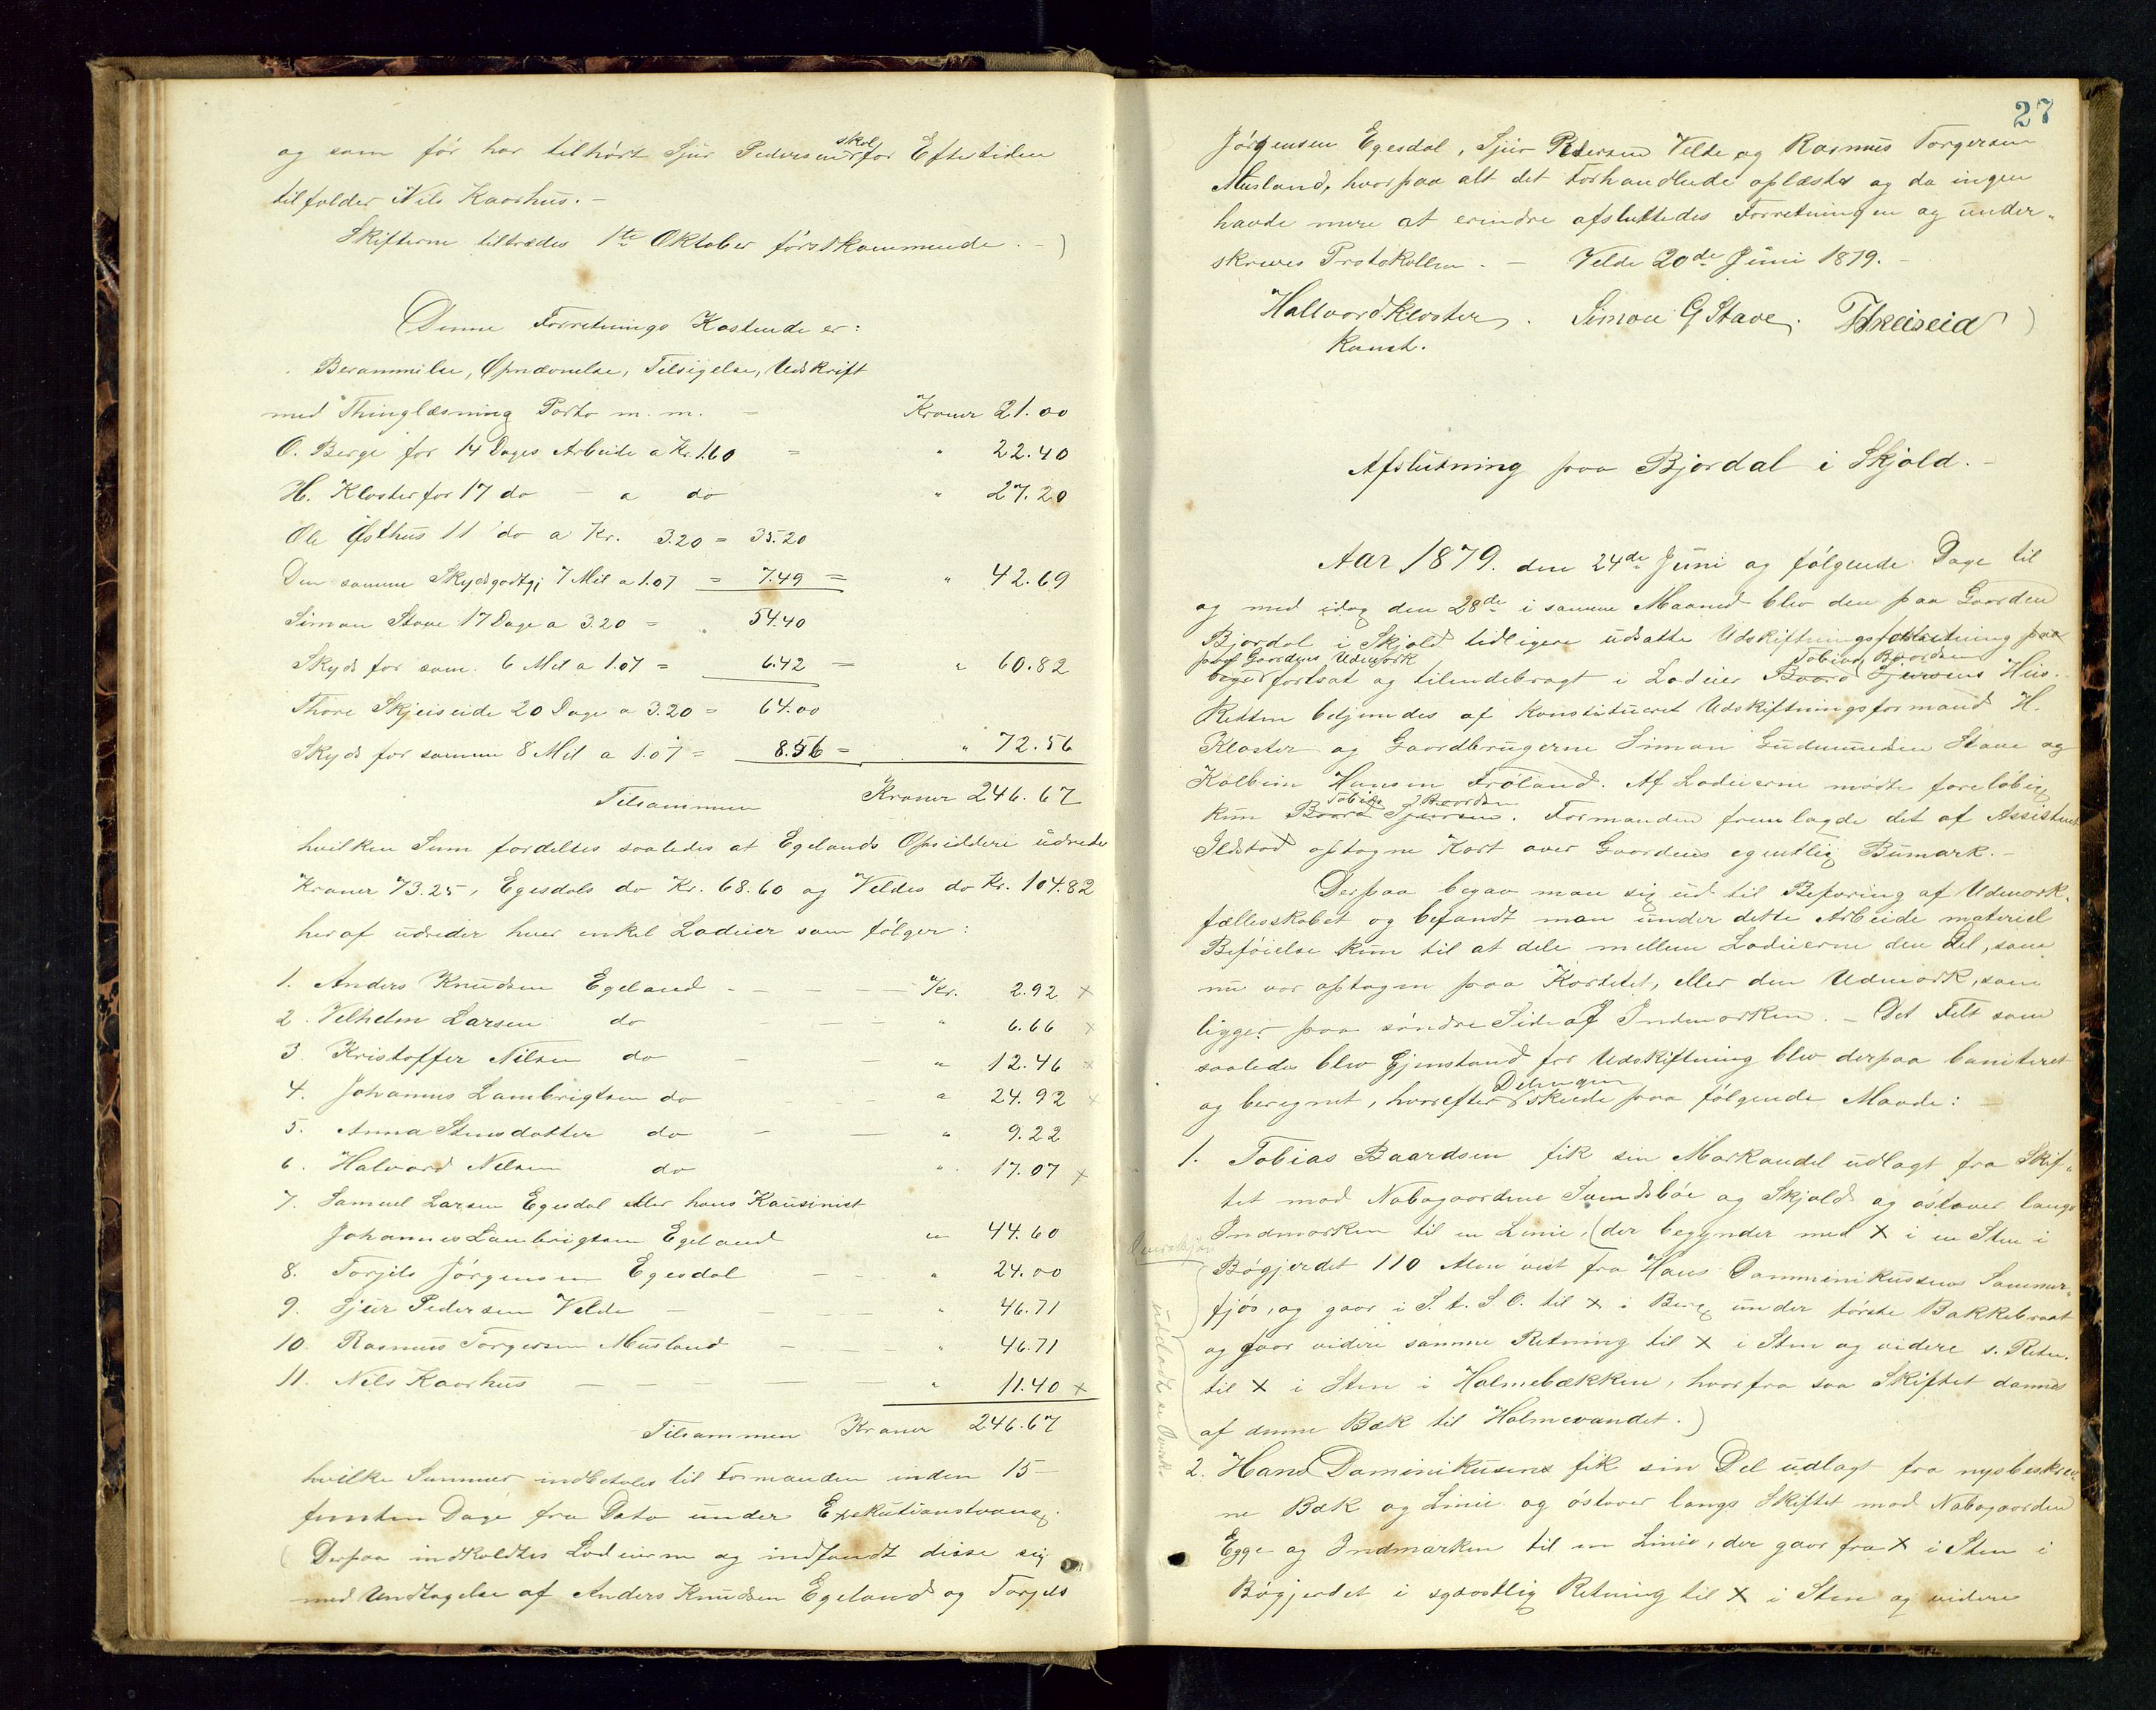 og som før har tilhørt Sjur Pedersen skal for Eftertiden
tilfalder Nils Kaarhus. -
Skifterne tiltrædes 1ste Oktober førstkommende. - )
Denne Forretnings Kostende er:
Berammelse, Opnævnelse, Tilsigelse, Udskrift
med Thinglæsning Porto m. m. - Kroner 21.00
O. Berge for 14 Dages Arbeide a Kr. 1.60 = " 22.40
H. Kloster for 17 do - a do " 27.20
Ole Østhus 11 do a Kr. 3.20 = 35.20
Den samme Skydsgodtg; 7 Mil a 1.07 = 7.49 = " 42.69
Simon Stave 17 Dage a 3.20 = 54.40
Skyds for sam. 6 Mil a 1.07 = 6.42 = " 60.82
Thore Skjeiseide 20 Dage a 3.20 = 64.00
Skyds for samme 8 Mil a 1.07 = 8.56 = " 72.56
Tilsammen Kroner 246.67
hvilken Sum fordeltes saaledes at Egelands Opsiddere udreder
Kroner 73.25, Egesdals do Kr. 68.60 og Veldes do Kr. 104.82
heraf udreder hver enkel Lodeier som følger:
1. Anders Knudsen Egeland - - - Kr. 2.92 x
2. Velhelm Larsen do - - - " 6.66 x
3. Kristoffer Nilsen do - - " 12.46 x
4. Johannes Lambrigtsen do - - - " 24.92 x
5. Anna Stensdatter do - - " 9.22
6. Halvard Nilsen do " 17.07 x
7. Samuel Larsen Egesdal eller hans Kausinist
Johannes Lambrigtsen Egeland " 44.60
8. Torjils Jørgensen Egesdal - - " 24.00
9. Sjur Pedersen Velde - - - - " 46.71
10. Rasmus Torgersen Musland - - - " 46.71
11. Nils Kaarhus - - - - - " 11.40 x
Tilsammen Kroner 246.67
hvilke Summer indbetales til Formanden inden 15 -
femten Dage fra Dato under Exekutionstvang.
( Derpaa indkaldtes Lodeierne og indfandt disse sig
med Undtagelse af Anders Knudsen Egeland og Torjils
27
Jørgensen Egesdal, Sjur Pedersen Velde og Rasmus Torgersen
Musland, hvorpaa alt det Forhandlede oplæstes og da ingen
havde mere at erindre afsluttedes Forretningen og under-
skreves Protokollen. - Velde 20de Juni 1879. -
Hallvard Kloster. Simon G Stave. TSkeiseid )
Konst.
Afslutning paa Bjordal i Skjold. -
Aar 1879. den 24de Juni og følgende Dage til
og med idag den 28de i samme Maaned blev den paa Gaarden
Bjordal i Skjold tidligere udsatte Udskiftningsforretning paa
paa Gaardens Udmark Tobias Baardsen
fortsat og tilendebragt i Lodeier Baard Hus.
Retten betjendes af Konstitueret Udskiftningsformand H.
Kloster og Gaardbrugerne Simon Gudmundsen Stave og
Kolbein Hansen Frøland. Af Lodeierne mødte foreløbig
Tobias Baardsen
kun Baard. Formanden fremlagde det af Assistent
Ildstad optagne Kort over Gaardens egentlig Bumark. -
Derpaa begav man sig ud til Befaring af Udmark-
fællesskabet og befandt man under dette Arbeide materiel
Beføielse kun til at dele mellem Lodeierne den Del, som
nu var optagen paa Kortet, eller den Udmark, som
ligger paa søndre Side af Indmarken. - Det Felt som
saaledes blev Gjenstand for Udskiftning blev derpaa boniteret
Delingen
og beregnet, hvorefter skeede paa følgende Maade: -
1. Tobias Baardsen fik sin Markandel udlagt fra Skif-
tet mod Nabogaardene Sundsbøe og Skjold og østover langs
Indmarken til en Linie, (der begynder med X i en Sten i
Bøgjerdet 110 Alen vest fra Hans Damminikussens Sommer-
fjøs, og gaar i S. t. S. O. til X i Berg under første Bakkebraat
og gaar videre samme Retning til X i Sten og videre s. Retn.
til X i Sten i Holmebækken, hvorfra saa Skiftet dannes
af denne Bæk til Holmevandet. )
2. Hans Daminikusens fik sin Del udlagt fra nysbeskrev-
ne Bæk og Linie og østover langs Skiftet mod Nabogaarden
Egge og Indmarken til en Linie, der gaar fra X i Sten i
Bøgjerdet i sydostlig Retning til X i Sten og videre